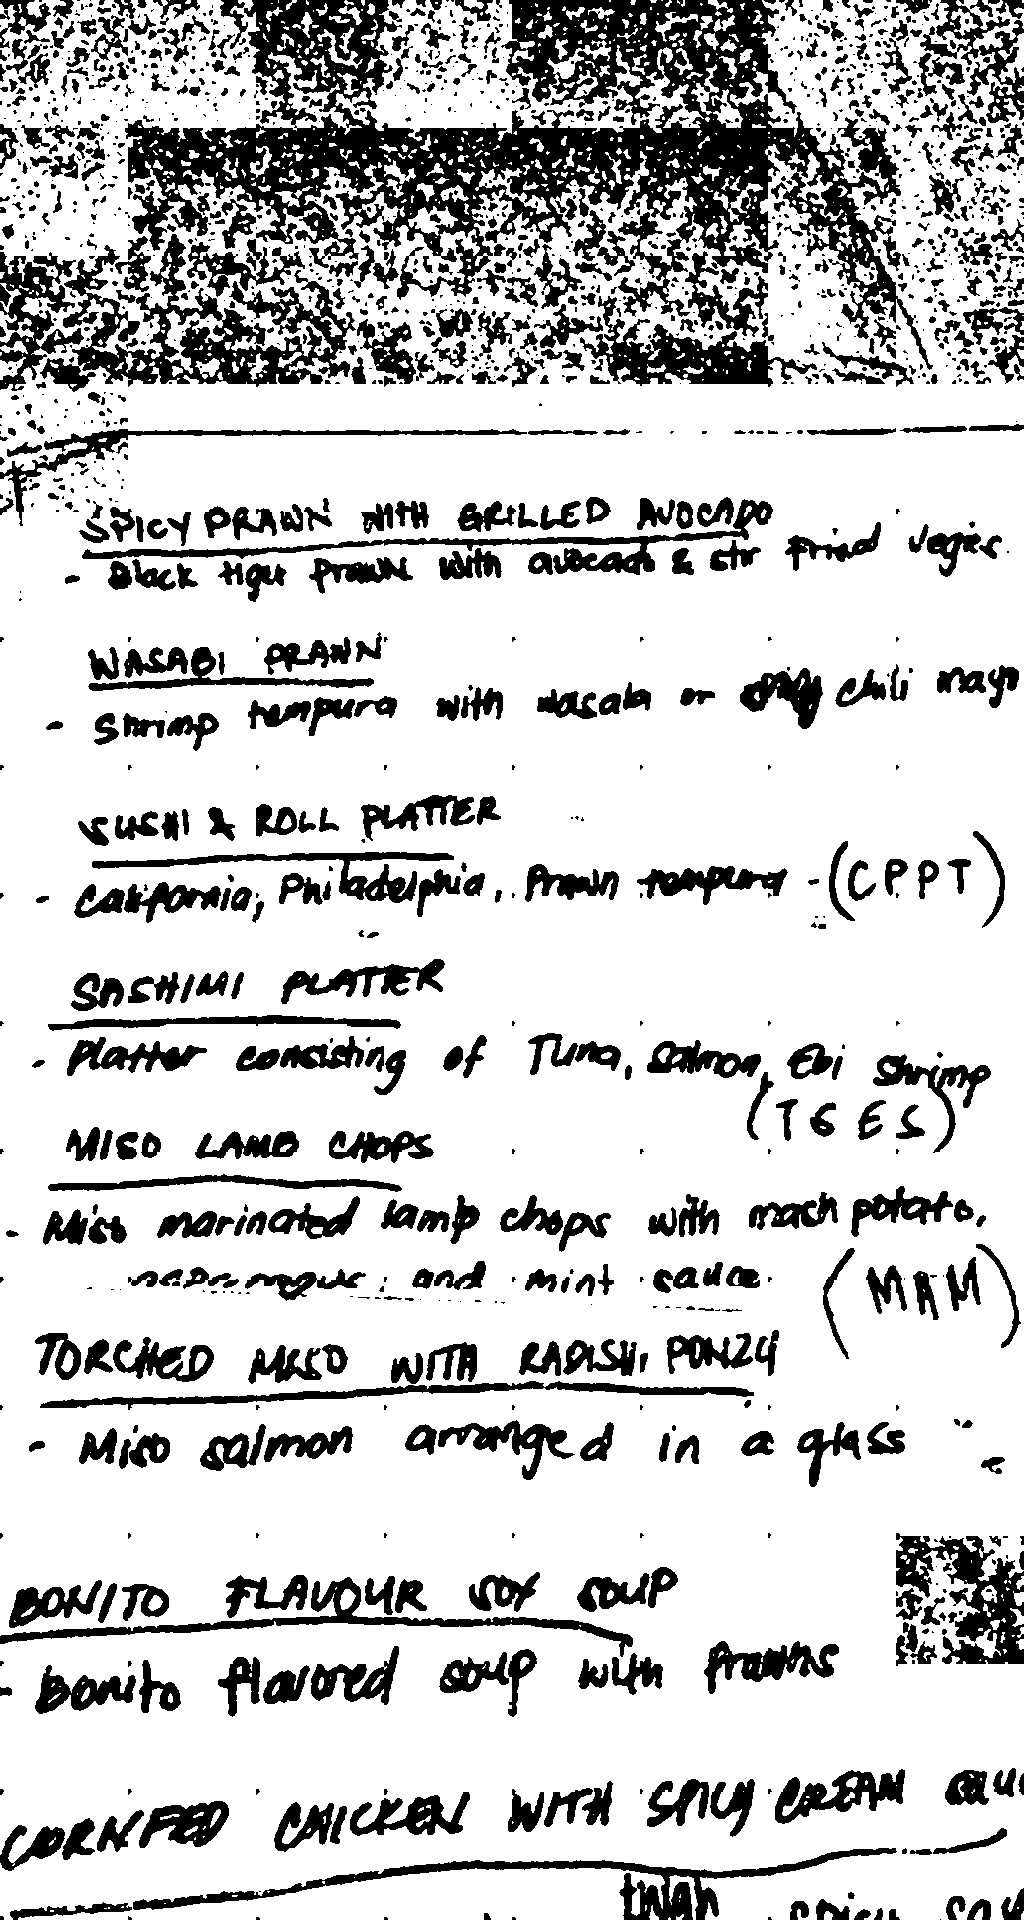 SPICY PRAWN WITH GRILLED AVOCADO
- Black tiger prawn with avocado & stir fried vegies
WASABI PRAWN
- Shrimp tempura with wasala or spicy chili mayo
SUSHI & ROLL PLATTER
- California, Philadelphia, Prawn tempura - (CPPT)
SASHIMI PLATTER
- Platter consisting of Tuna, Salmon, Ebi Shrimp
(TSES)
MISO LAMB CHOPS
- Miso marinated lamp chops with mash potato,
and mint sauce (MAM)
TORCHED MISO WITH RADISH, PONZU
- Miso salmon arranged in a glass
BONITO FLAVOUR SOY SOUP
- Bonito flavored soup with Prawns
CORNFED CHICKEN WITH SPICY CREAM